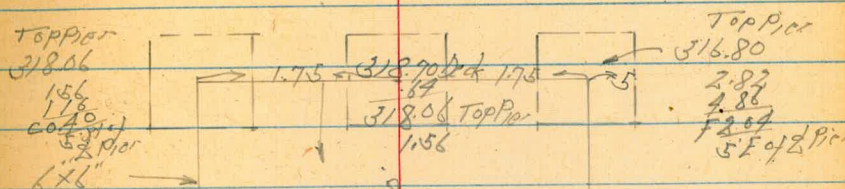 Top Pier
318.06
1.56
1.16
C0.40
5' E of
℄ Pier
6"x6"
1.75
318.70 Deck 1.75
.64
318.06 Top Pier
1.56
5
Top Pier
316.80
2.82
4.86
F2.04
5' E of ℄ Pier